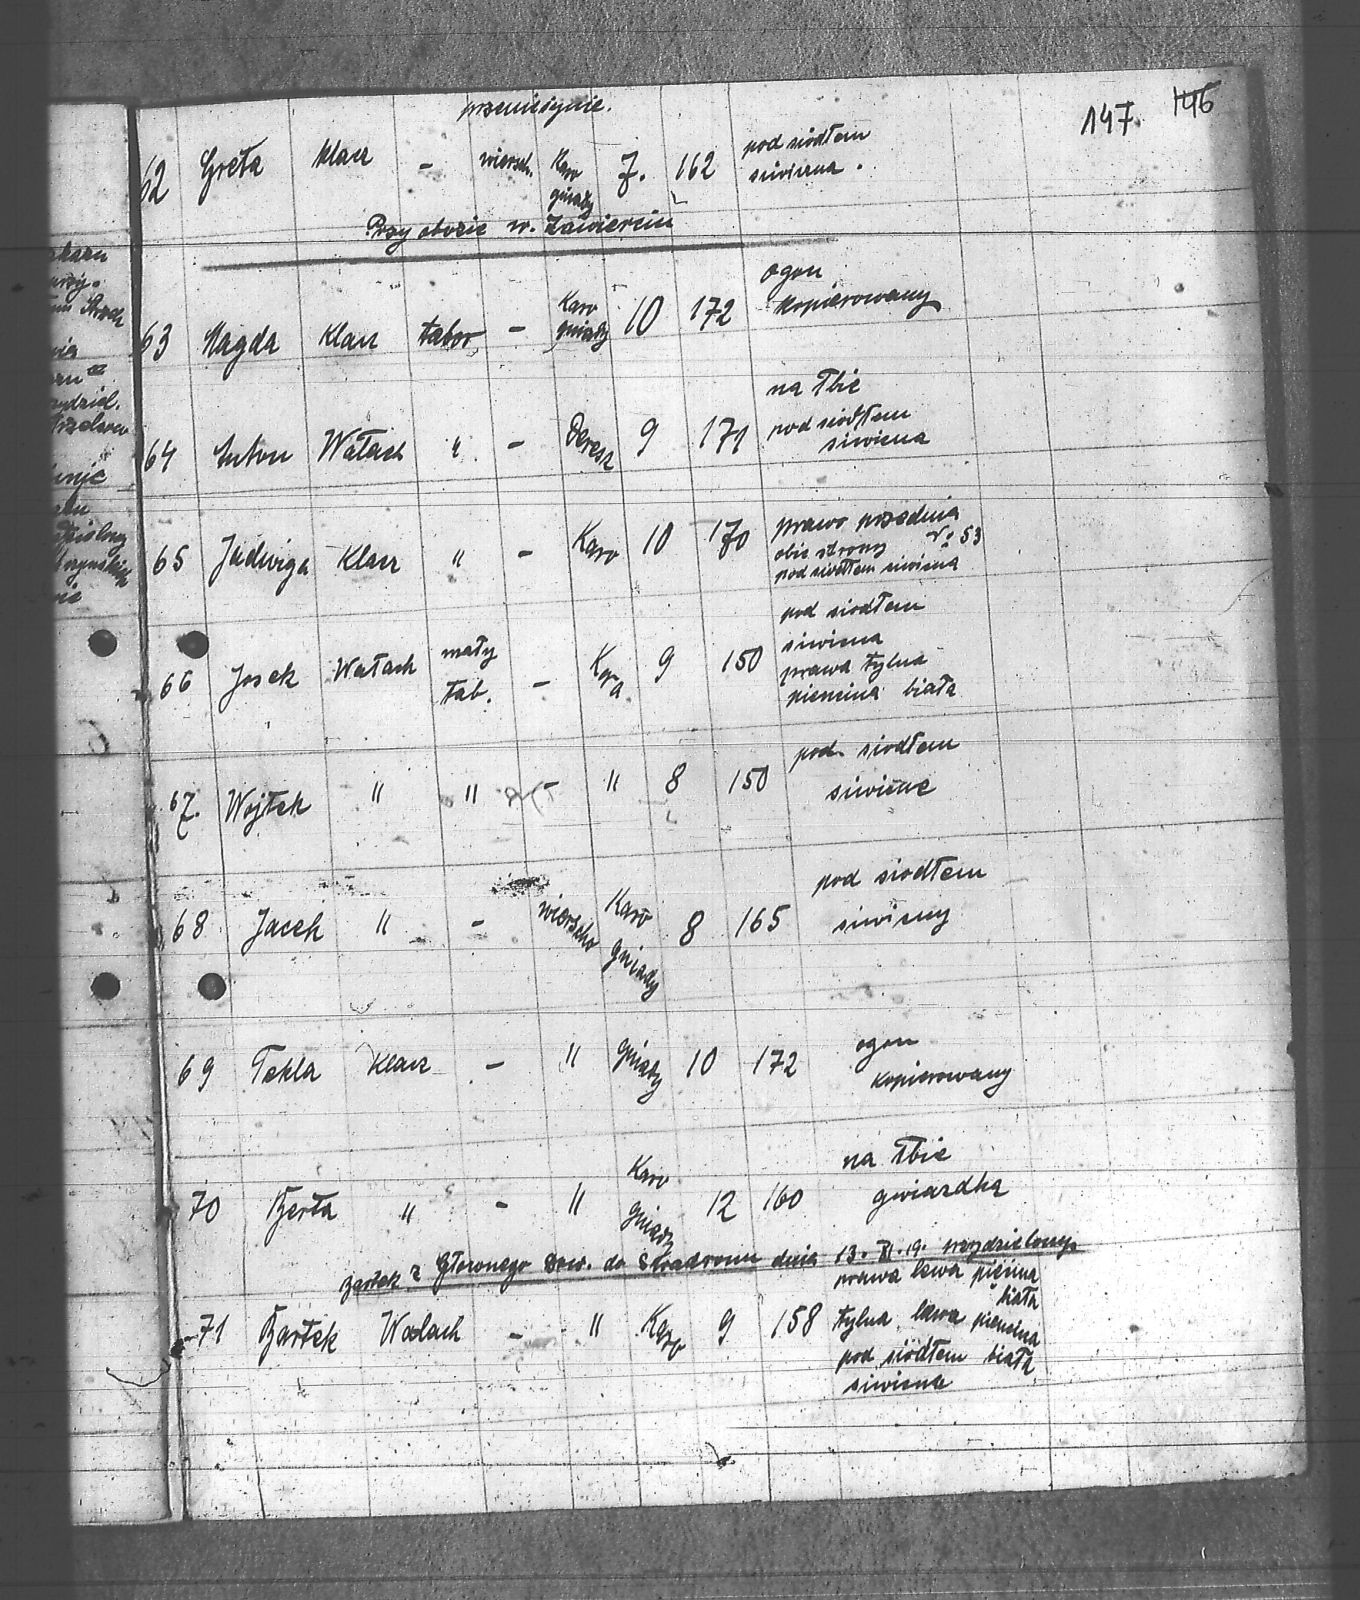 przeniesienie.
147. 146
62 Greta Klacz - wiersch. Karo gniady 7. 162 pod siodłem siwizna.
Przy obozie w. Zawierciu
63 Magda Klacz tabor - Karo gniady 10 172 ogon kopierowany
64 Anton Wałach " - Deresz 9 171 na łbie pod siodłem siwizna
65 Jadwiga Klacz " - Karo 10 170 prawo pozadnia obie strony No 53 pod siodłem siwizna
66 Josek Wałach mały tab. - Kara 9 150 pod siodłem siwizna prawa tylna piencina biała
67. Wojtek " " - " 8 150 pod siodłem siwizne
68 Jacek " - wierscho Karo gniady 8 165 pod siodłem siwizny
69 Tekla Klacz - " gniady 10 172 ogon kopierowany
70 Berta " - " Karo gniady 12 160 na łbie gwiazdka
z Głownego Dow. do Stradomu dnia 13. XI. 19. przydzielony.
71 Bartek Wałach - " Karo 9 158 prawa lewa piencina biała tylna lewa piencina biała pod siodłem siwizna